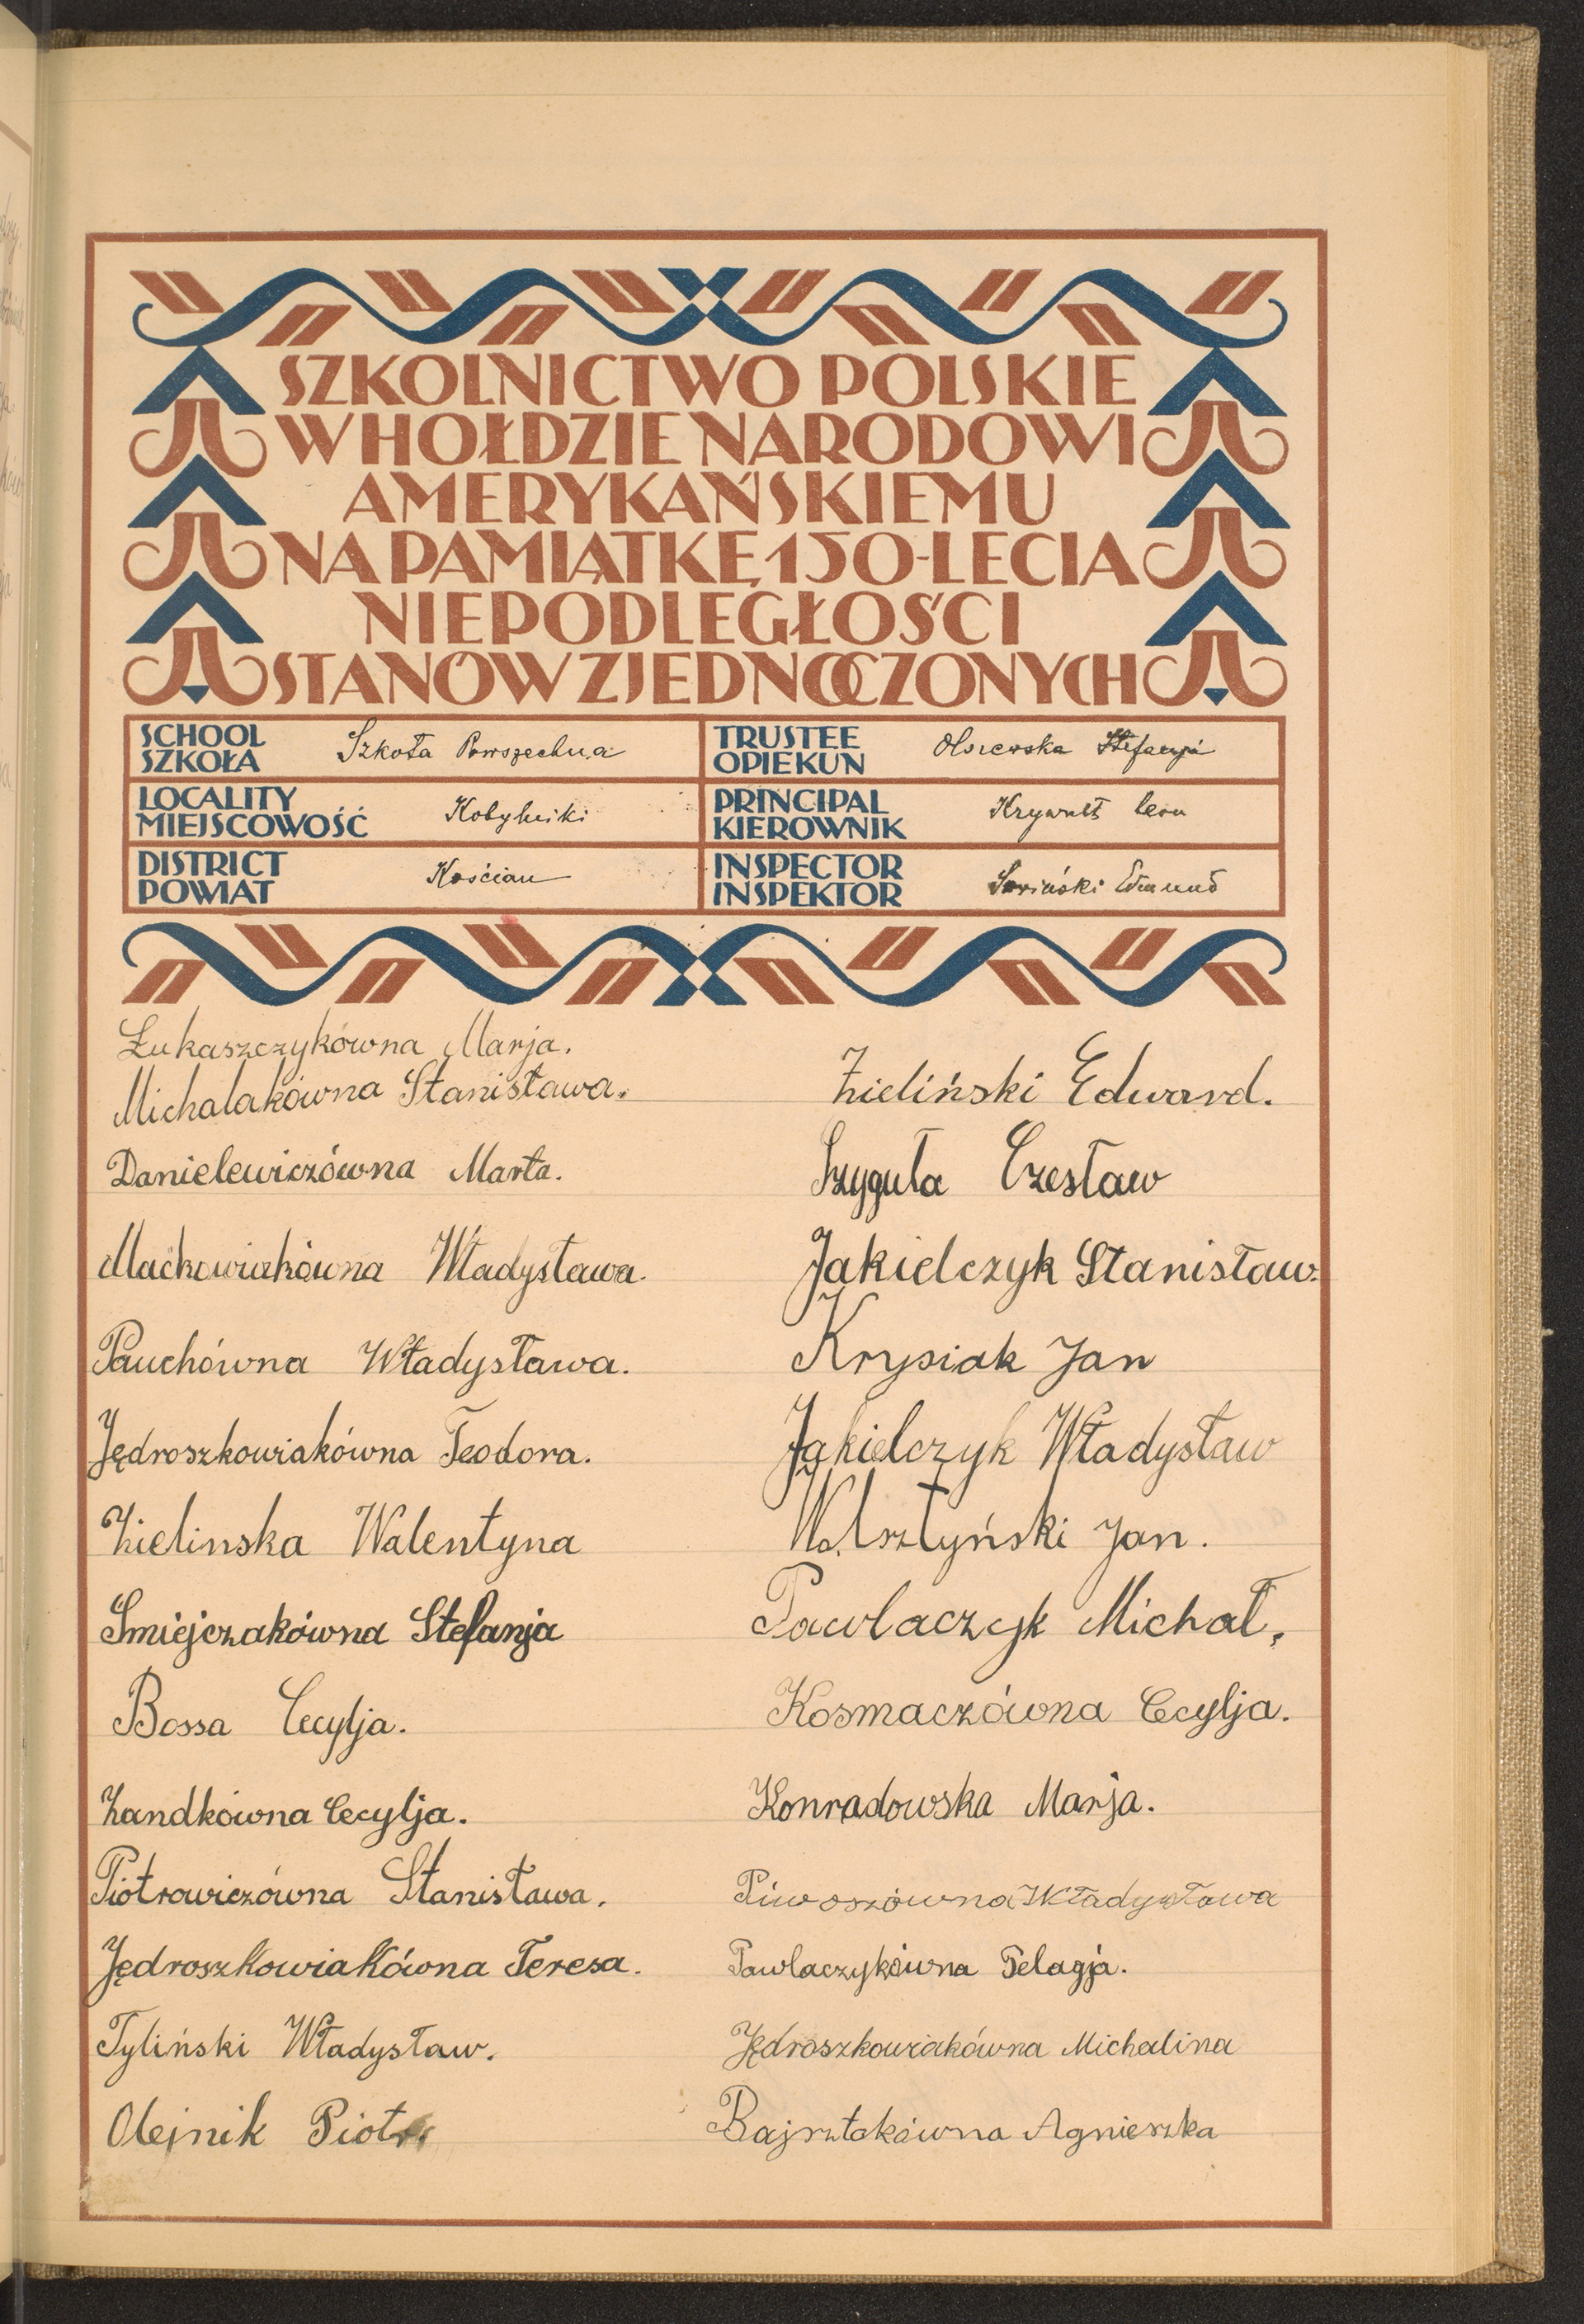 SZKOLNICTWO POLSKIE
W HOŁDZIE NARODOWI
AMERYKAŃSKIEMU
NA PAMIĄTKĘ 150-LECIA
NIEPODLEGŁOŚCI
STANÓW ZJEDNOCZONYCH
SCHOOL
SZKOŁA
Szkoła Powszechna
TRUSTEE
OPIEKUN
Olszewska Stefanja
LOCALITY
MIEJSCOWOŚĆ
Kobylniki
PRINCIPAL
KIEROWNIK
Krywult Leon
DISTRICT
POWIAT
Kościan
INSPECTOR
INSPEKTOR
Edmund
Łukaszczykówna Marja.
Michalakówna Stanisława.
Danielewiczówna Marta.
Maćkowiakówna Władysława.
Pauchówna Władysława.
Jędroszkowiakówna Teodora.
Zielinska Walentyna
Śmiejczakówna Stefanja
Bossa Cecylja.
Zandkówna Cecylja.
Piotrowiczówna Stanisława.
Jędroszkowiakówna Teresa.
Tyliński Władysław.
Olejnik Piotr
Zieliński Edward.
Szyguła Czesław
Jakielczyk Stanisław.
Krysiak Jan
Jakielczyk Władysław
Wolsztyński Jan.
Pawlaczyk Michał.
Kosmaczówna Cecylja.
Konradowska Marja.
Piwoszówna Władysława
Pawlaczykówna Pelagja.
Jędroszkowiakówna Michalina
Bajsztokówna Agnieszka